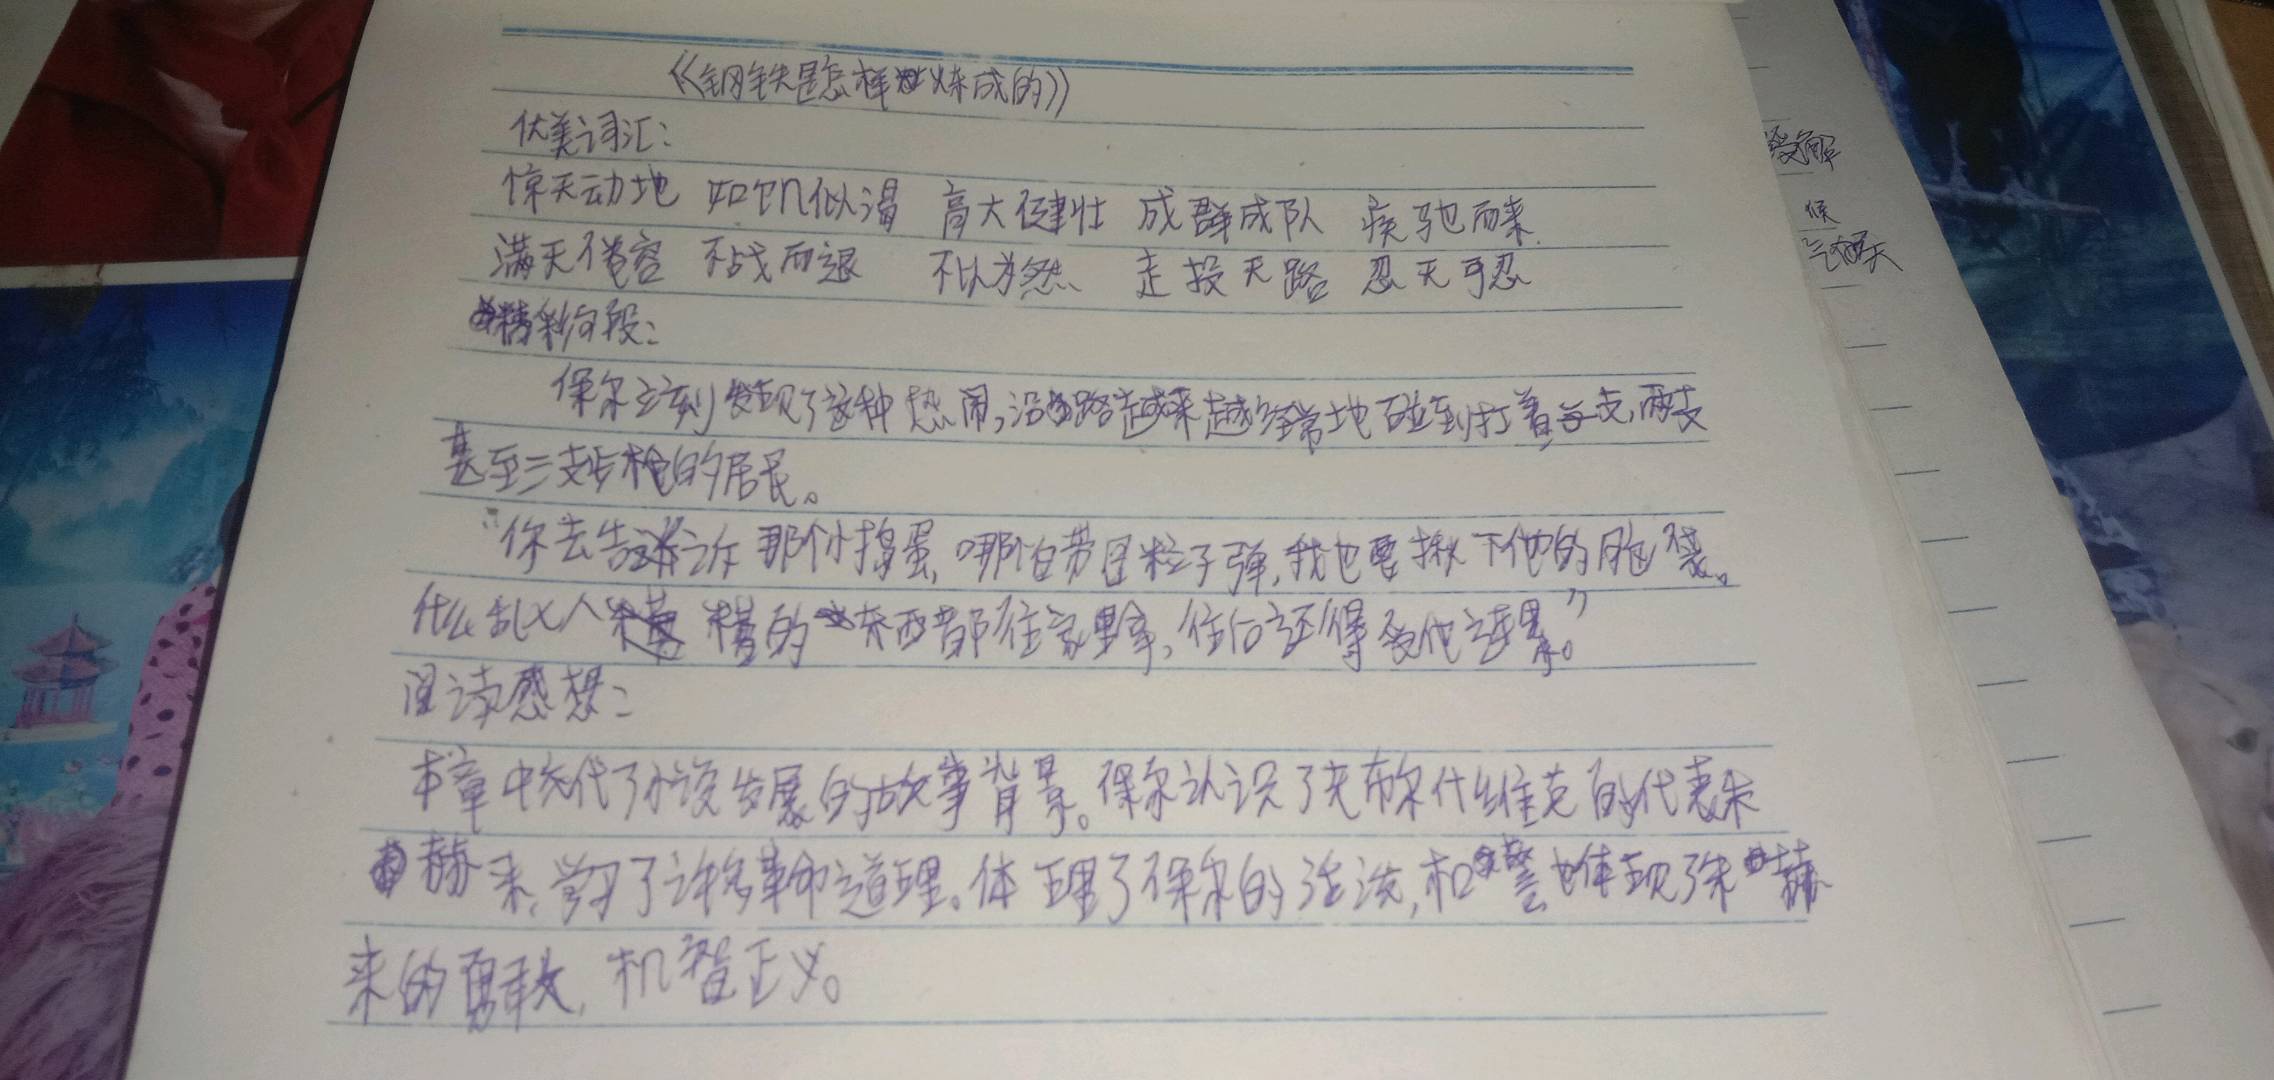 《钢铁是怎样炼成的》
优美词汇:
惊天动地 如饥似渴 高大健壮 成群成队 疾驰而来
满天 不战而退 不以为然 走投无路 忍无可忍
精彩句段:
保尔立刻发现了这种热闹,沿路越来越经常地碰到扛着一支,两支
甚至三支步枪的居民。
"你去告诉那个小捣蛋,哪怕带回粒子弹,我也要揪下他的脑袋。
什么乱七八糟的东西都往家里拿,往后还得受他连累。"
阅读感想:
本章中交代了小说发展的故事背景。保尔认识了布尔什维克的代表朱
赫来,学习了许多革命道理。体现了保尔的活泼,和 也体现了朱赫
来的勇敢,机智正义。
候